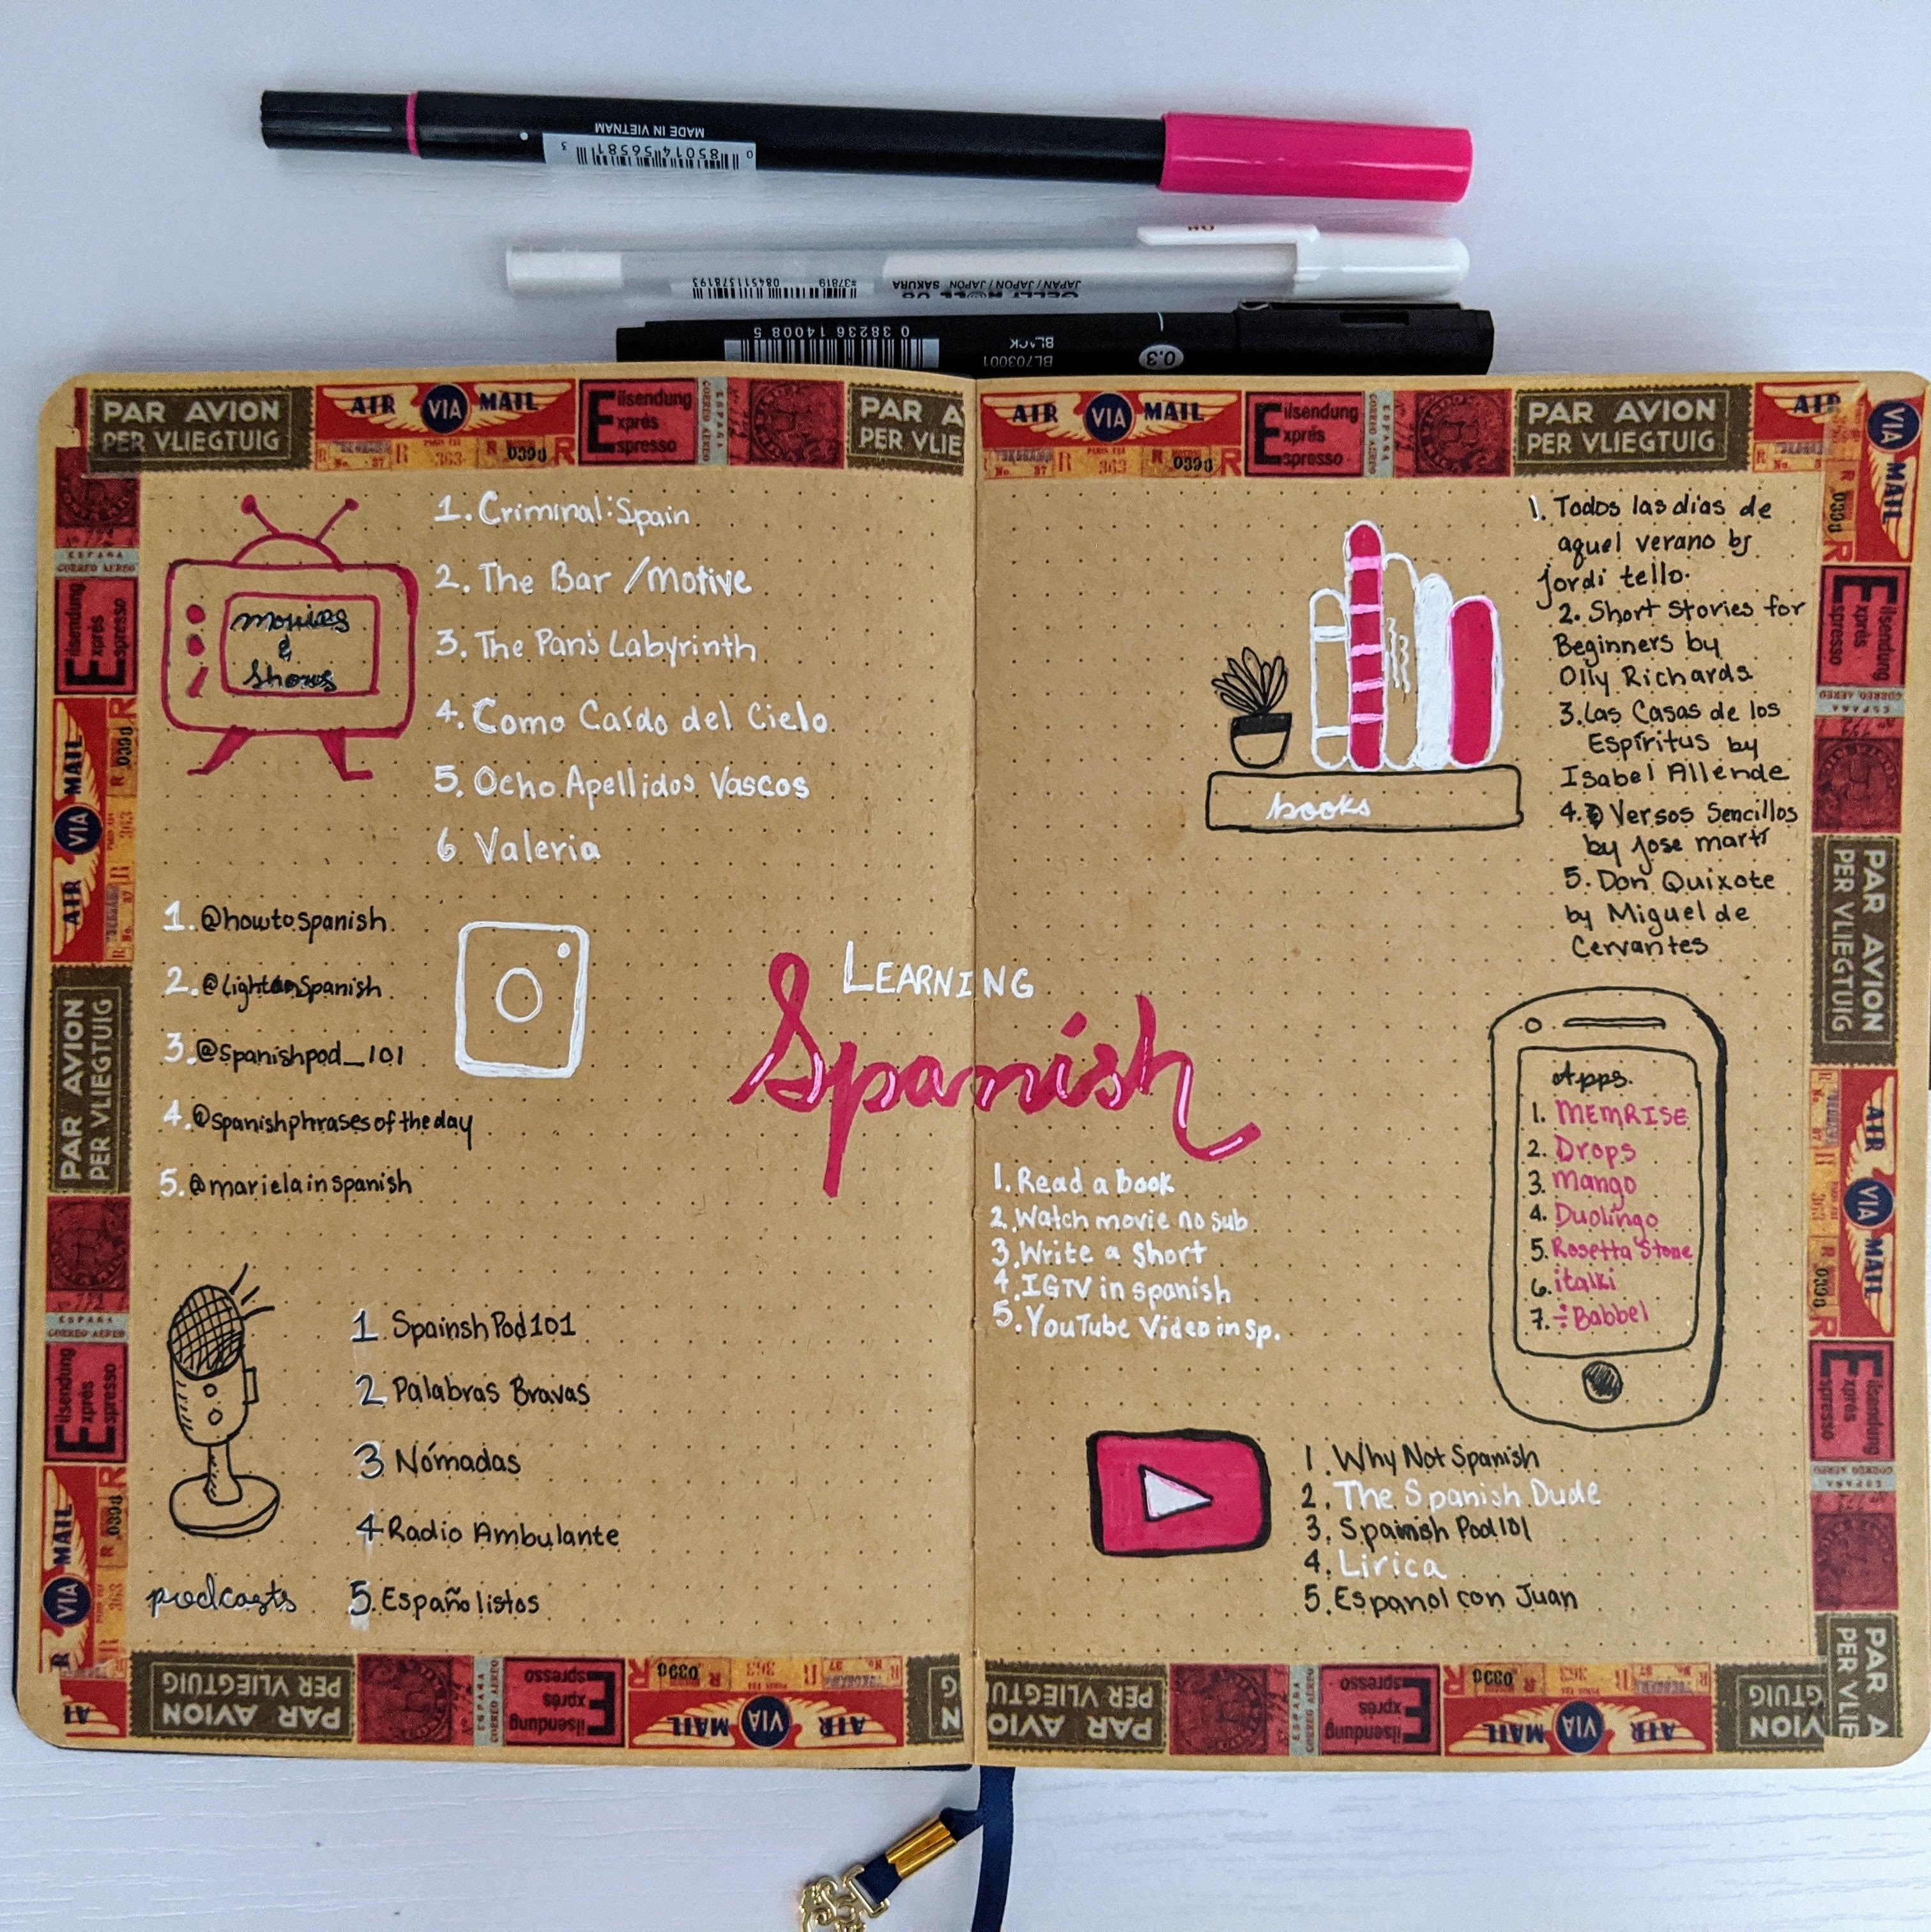 MADE IN VIETNAM
0 85014 56581 3
08
#37819 084511378193
GELLY ROLL 08
JAPAN / JAPON / JAPÓN SAKURA
0 38236 14008 5
BL703001
BLACK
0.3
PAR AVION
PER VLIEGTUIG
AIR VIA MAIL
R 363 R 0390 R
Eilsendung
Exprés
Espresso
ESPAÑA
CORREO AEREO
movies
&
shows
1. Criminal: Spain
2. The Bar / Motive
3. The Pan's Labyrinth
4. Como Caído del Cielo
5. Ocho Apellidos Vascos
6 Valeria
1. @howtospanish
2. @lightonspanish
3. @spanishpod_101
4. @spanishphrasesoftheday
5. @marielainspanish
podcasts
1 Spainsh Pod101
2 Palabras Bravas
3 Nómadas
4 Radio Ambulante
5. Españolistos
LEARNING
Spanish
books
1. Todos las dias de
aquel verano by
jordi tello.
2. Short Stories for
Beginners by
Olly Richards
3. Las Casas de los
Espíritus by
Isabel Allende
4. Versos Sencillos
by Jose martí
5. Don Quixote
by Miguel de
Cervantes
1. Read a book
2. Watch movie no sub
3. Write a short
4. IGTV in spanish
5. YouTube Video in sp.
Apps.
1. MEMRISE
2. Drops
3. Mango
4. Duolingo
5. Rosetta Stone
6. italki
7. Babbel
1. Why Not Spanish
2. The Spanish Dude
3. Spanish Pod101
4. Lirica
5. Espanol con Juan